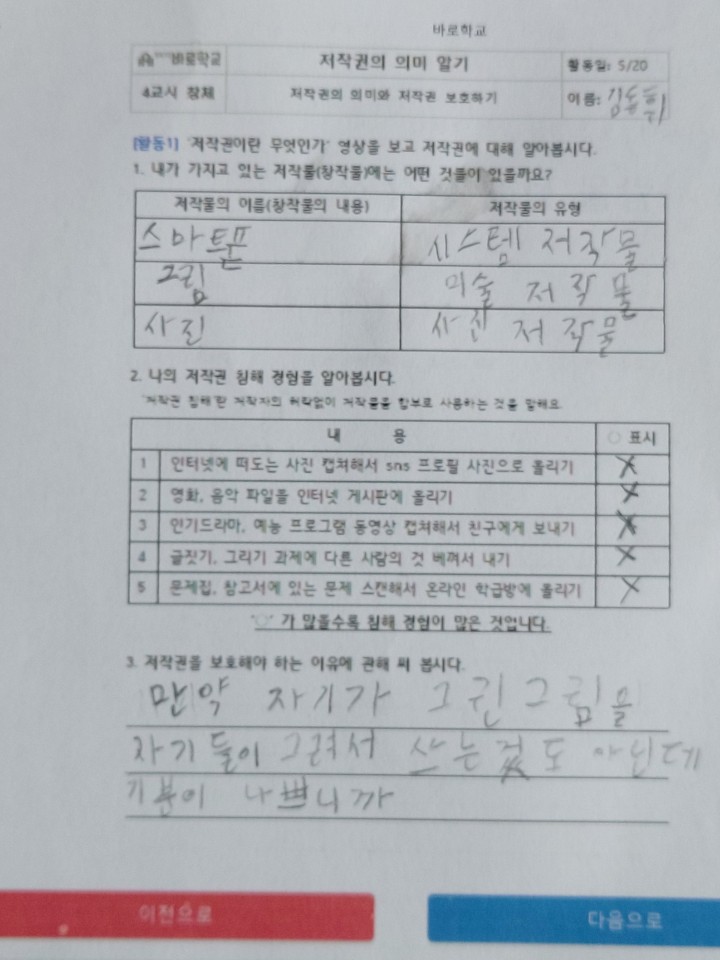 바로학교
바로학교 저작권의 의미 알기 활동일: 5/20
4교시 창체 저작권의 의미와 저작권 보호하기 이름:
[활동1] '저작권이란 무엇인가' 영상을 보고 저작권에 대해 알아봅시다.
1. 내가 가지고 있는 저작물(창작물)에는 어떤 것들이 있을까요?
저작물의 이름(창작물의 내용) 저작물의 유형
스마트폰 시스템 저작물
그림 미술 저작물
사진 사진 저작물
2. 나의 저작권 침해 경험을 알아봅시다.
'저작권 침해'란 저작자의 허락없이 저작물을 함부로 사용하는 것을 말해요.
내 용 ○ 표시
1 인터넷에 떠도는 사진 캡쳐해서 sns 프로필 사진으로 올리기 X
2 영화, 음악 파일을 인터넷 게시판에 올리기 X
3 인기드라마, 예능 프로그램 동영상 캡쳐해서 친구에게 보내기 X
4 글짓기, 그리기 과제에 다른 사람의 것 베껴서 내기 X
5 문제집, 참고서에 있는 문제 스캔해서 온라인 학급방에 올리기 X
'○' 가 많을수록 침해 경험이 많은 것입니다.
3. 저작권을 보호해야 하는 이유에 관해 써 봅시다.
만약 자기가 그린그림을
자기들이 그려서 는것도 아닌데
기분이 나쁘니까
이전으로 다음으로